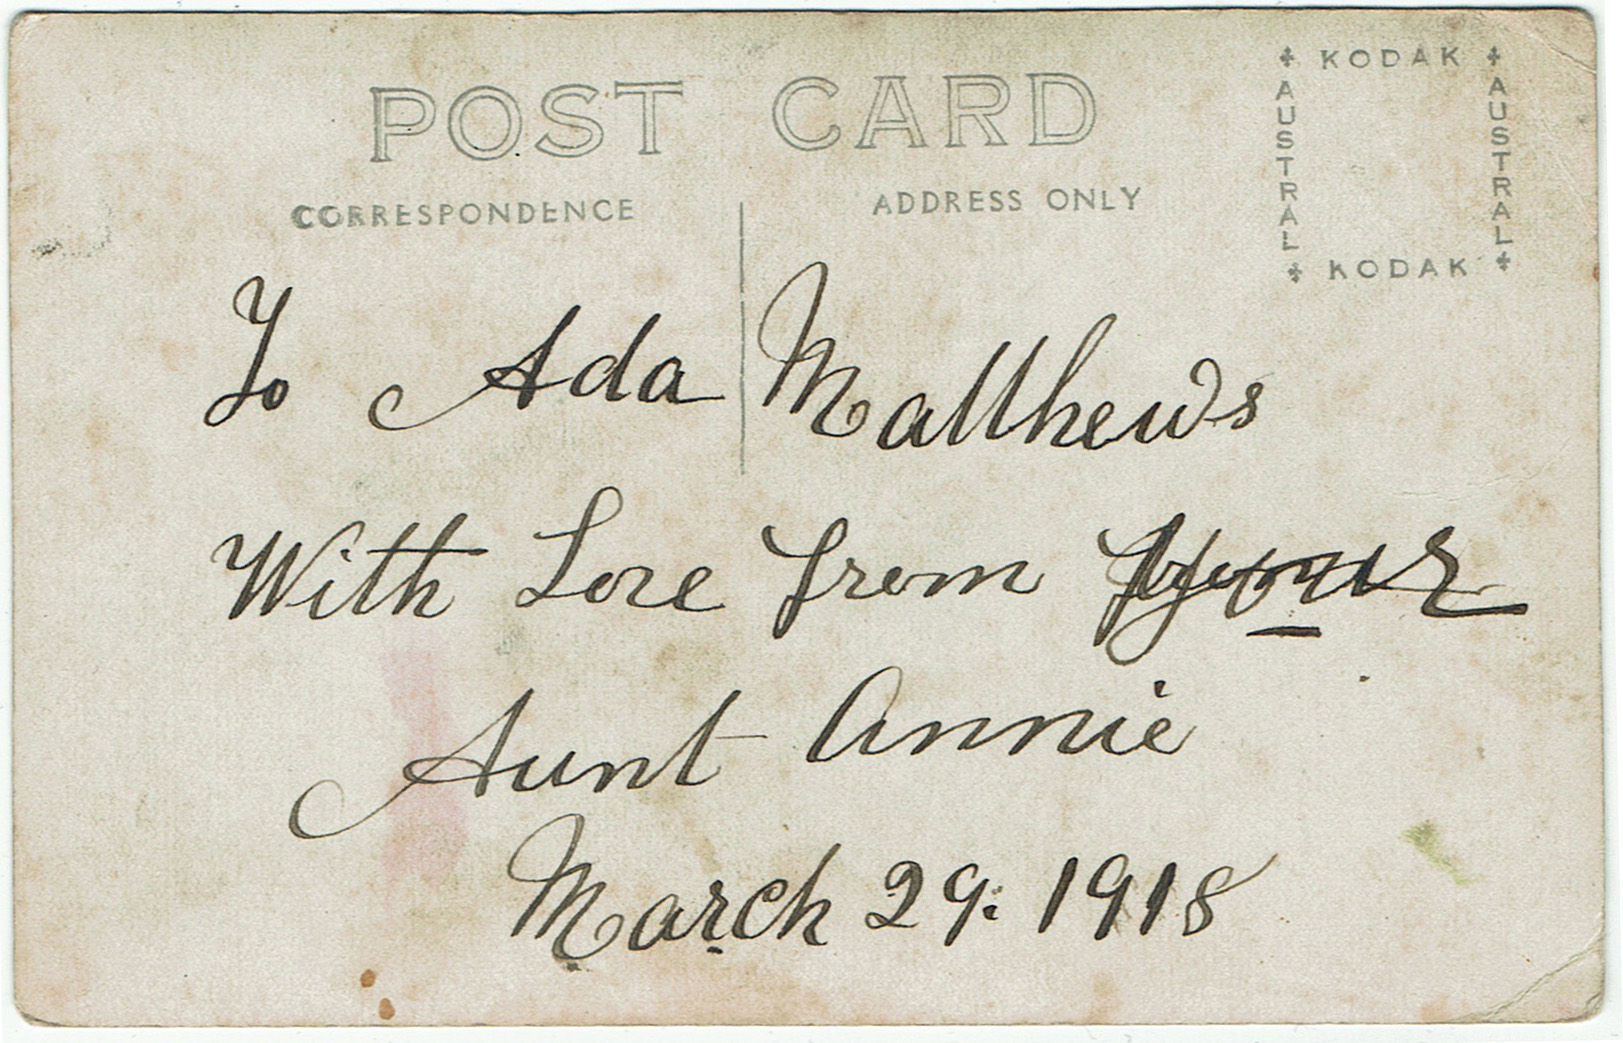 POST CARD
CORRESPONDENCE
ADDRESS ONLY
KODAK
AUSTRAL
AUSTRAL
KODAK
To Ada Matthews
With Love from
Aunt Annie
March 29: 1918